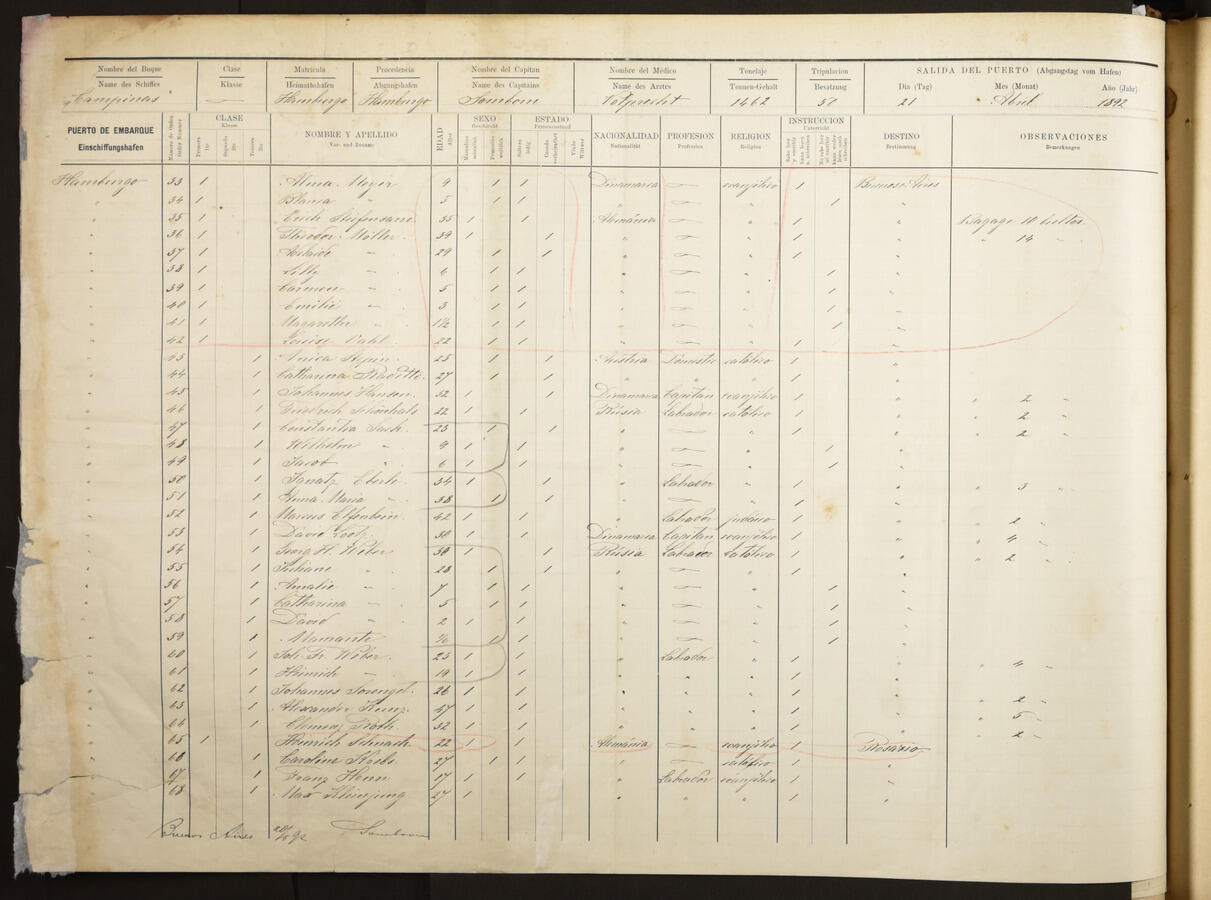 Nombre del Buque Clase Matrícula Procedencia Nombre del Capitan Nombre del Médico Tonelaje Tripulacion SALIDA DEL PUERTO (Abgangstag vom Hafen)
Name des Schiffes Klasse Heimathshafen Abgangshafen Name des Capitains Name des Arztes Tonnen-Gehalt Besatzung Dia (Tag) Mes (Monat) Año (Jahr)
Campinas — Hamburgo Hamburgo Sambom Volprecht 1462 50 21 Abril 1892
PUERTO DE EMBARQUE Einschiffungshafen Número de Orden CLASE Klasse Primera Segunda Tercera NOMBRE Y APELLIDO Vor- und Zuname EDAD Alter SEXO Geschlecht ESTADO Personenstand NACIONALIDAD Nationalität PROFESION Profession RELIGION Religion INSTRUCCION Unterricht DESTINO Bestimmung OBSERVACIONES Bemerkungen
Hamburgo 33 1 Alma Meyer 9 1 1 Dinamarca — evanjélico 1 Buenos Aires
" 34 1 Blanca " 5 1 1 " — " 1 "
" 35 1 Erich 35 1 1 Alemánia — " 1 " Bagage 10 bultos
" 36 1 Theodor Möller 39 1 1 " — " 1 " " 14 "
" 37 1 Adelaide " 29 1 1 " — " 1 "
" 38 1 Lilly " 6 1 1 " — " 1 "
" 39 1 Carmen " 5 1 1 " — " 1 "
" 40 1 Emilie " 3 1 1 " — " 1 "
" 41 1 Margarethe " 1½ 1 1 " — " 1 "
" 42 1 Louise Dahl 22 1 1 " — " 1 "
" 43 1 25 1 1 Austria Domestic católico 1 "
" 44 1 Catharina 27 1 1 " " " 1 "
" 45 1 Johannes Hansen 32 1 1 Dinamarca Capitan evanjélico 1 " " 2 "
" 46 1 Friedrich 22 1 1 Rúsia Labrador católico 1 " " 2 "
" 47 1 Constantia 25 1 1 " — " 1 " " 2 "
" 48 1 Wilhelm " 9 1 1 " — " 1 "
" 49 1 Jacob " 6 1 1 " — " 1 "
" 50 1 Ignatz Eberle 34 1 1 " Labrador " 1 " " 3 "
" 51 1 Anna Maria " 38 1 1 " — " 1 "
" 52 1 Marcus Elfenbein 42 1 1 " Labrador judáico 1 " " 2 "
" 53 1 David 30 1 1 Dinamarca Capitan evanjélico 1 " " 4 "
" 54 1 Georg H. Weber 39 1 1 Rúsia Labrador católico 1 " " 2 "
" 55 1 Juliane " 28 1 1 " — " 1 "
" 56 1 Amalie " 7 1 1 " — " 1 "
" 57 1 Catharina " 5 1 1 " — " 1 "
" 58 1 David " 2 1 1 " — " 1 "
" 59 1 Mamante 1 1 " — " 1 "
" 60 1 Joh. Fr. Weber 23 1 1 " Labrador " 1 " " 4 "
" 61 1 Heinrich " 19 1 1 " " " 1 "
" 62 1 Johannes Sprengel 26 1 1 " " " 1 "
" 63 1 Alexander Kunz 47 1 1 " " " 1 " " 2 "
" 64 1 Roth 32 1 1 " " " 1 " " 5 "
" 65 1 Heinrich Schnack 22 1 1 Alemánia — evanjélico 1 Rosario " 2 "
" 66 1 Caroline 27 1 1 " " católico 1 "
" 67 1 Franz Henn 17 1 1 " Labrador evanjélico 1 "
" 68 1 Max Kleinjung 27 1 " " " 1 "
Buenos Aires 20/5 92 Sambom